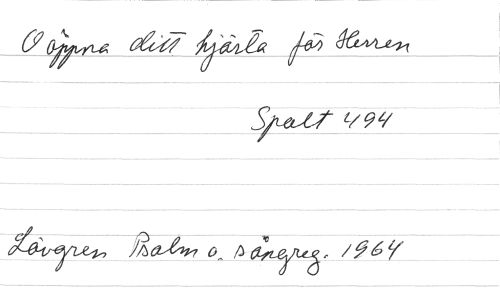 O öppna ditt hjärta för Herren
Spalt 494
Lövgren Psalm o. sångreg. 1964